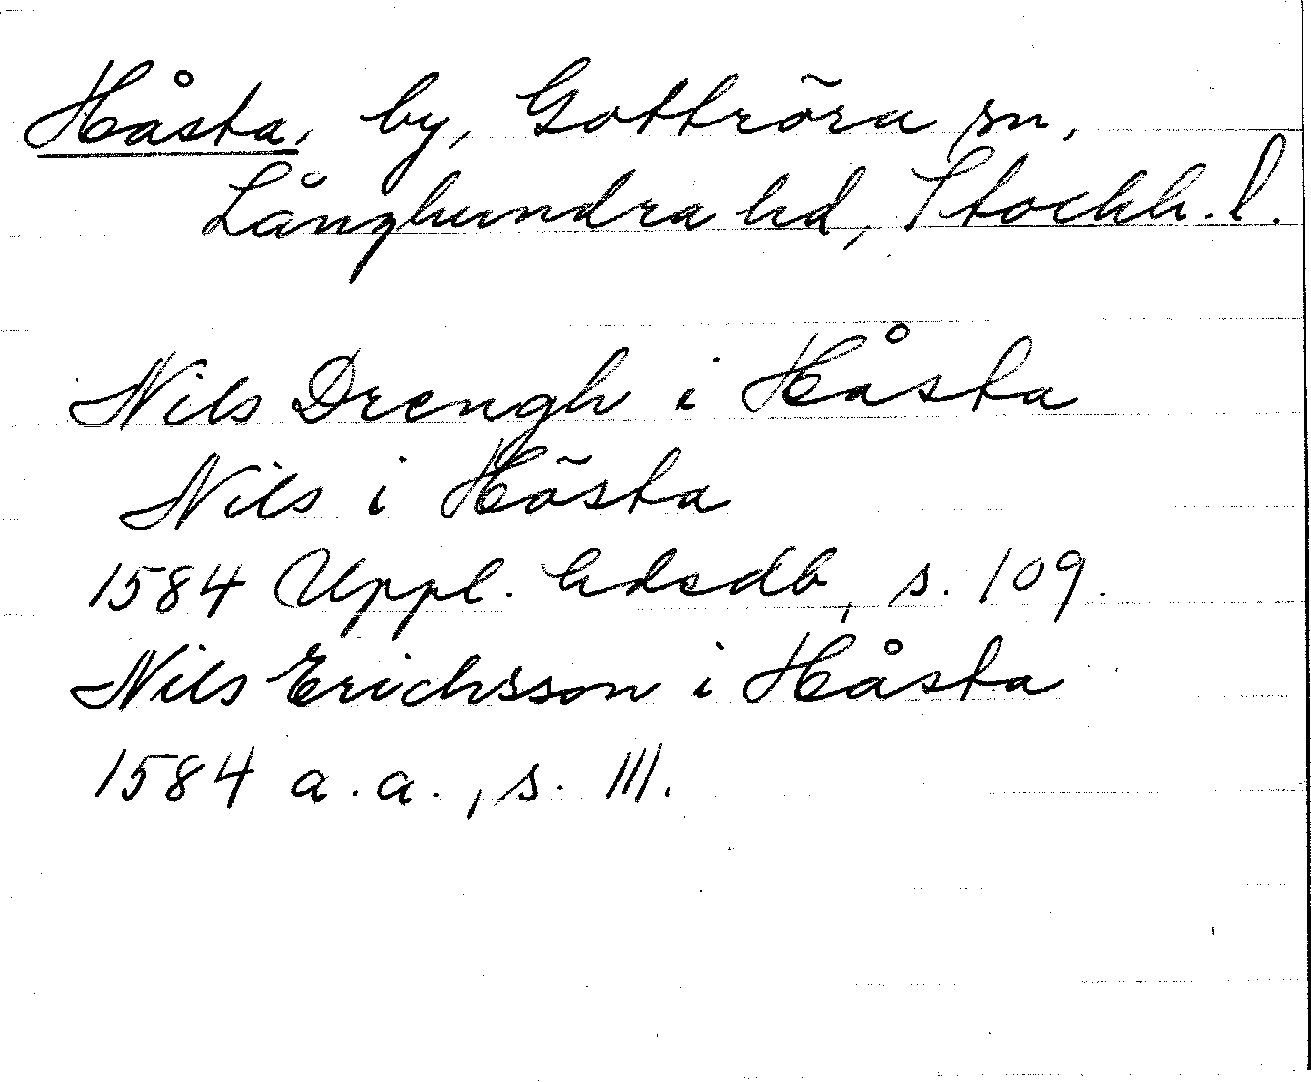 Håsta, by, Gottröra sn,
Långhundra hd, Stockh. l.
Nils Drengh i Håsta
Nils i Hösta
1584 Uppl. hdsdb, s. 109.
Nils Erichsson i Håsta
1584 a.a., s. 111.